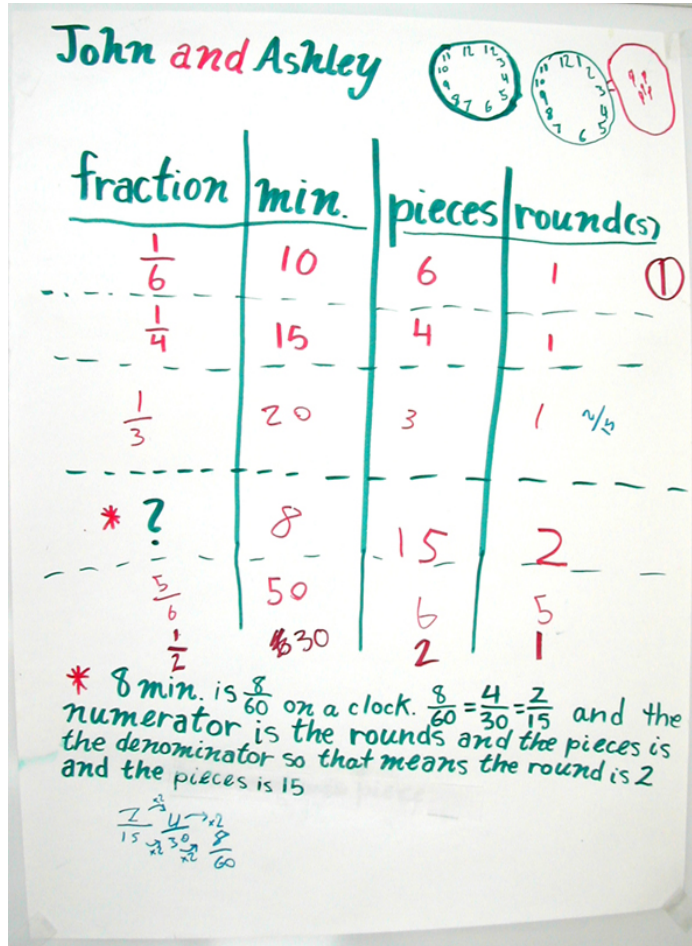 John and Ashley
11 12 12 3 4 5 6 7 8 9 10
11 12 1 2 3 4 5 6 7 8 9 10
fraction min. pieces round(s)
1/6 10 6 1 ①
1/4 15 4 1
1/3 20 3 1
* ? 8 15 2
5/6 50 6 5
1/2 30 2 1
* 8 min. is 8/60 on a clock. 8/60 = 4/30 = 2/15 and the
numerator is the rounds and the pieces is
the denominator so that means the round is 2
and the pieces is 15
x2 x2
2/15 4/30 8/60
x2 x2